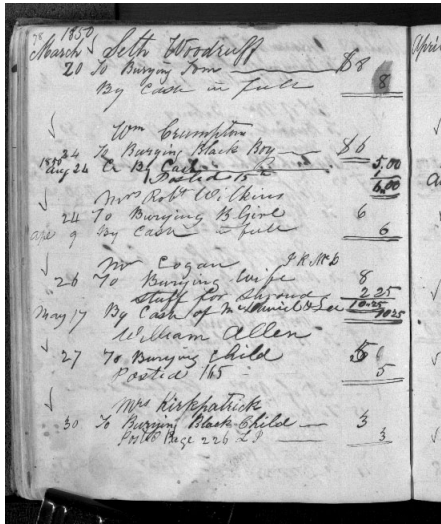 78 1850
March Seth Woodruff
20 To Burying Son $8
By Cash in full 8
Wm Crumpton
24 To Burying Black Boy $6
1850 Aug 24 Cr By Cash 5.00
Posted 15 1
6.00
Mrs Robt Wilkins
24 To Burying B Girl 6
Apr 9 By Cash in full 6
Mr Cogan
26 To Burying Wife 8
Stuff for Shroud 2 25
10.25
May 17 By Cash of 1025
William Allen
27 To Burying Child 5
Posted 165 5
Mrs Kirkpatrick
30 To Burying Black Child 3
Posted Page 226 3
April